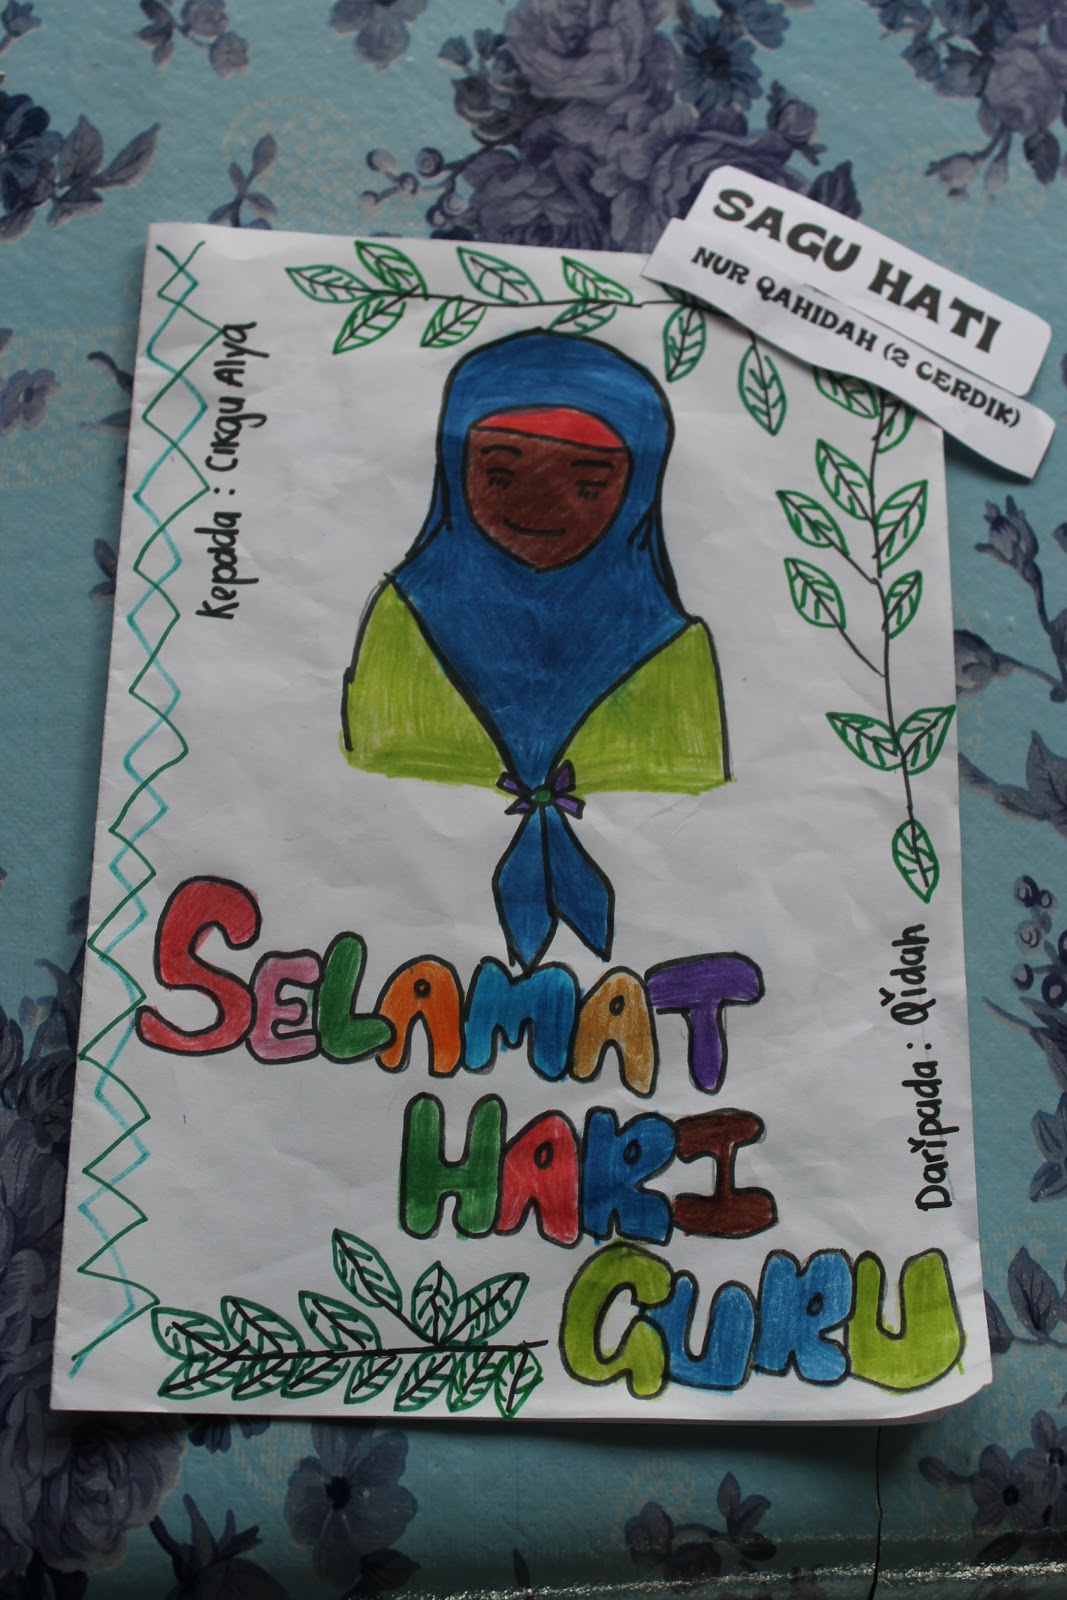 SAGU HATI
NUR QAHIDAH (2 CERDIK)
Kepada : Cikgu Alya
SELAMAT
HARI
GURU
Daripada : Qidah